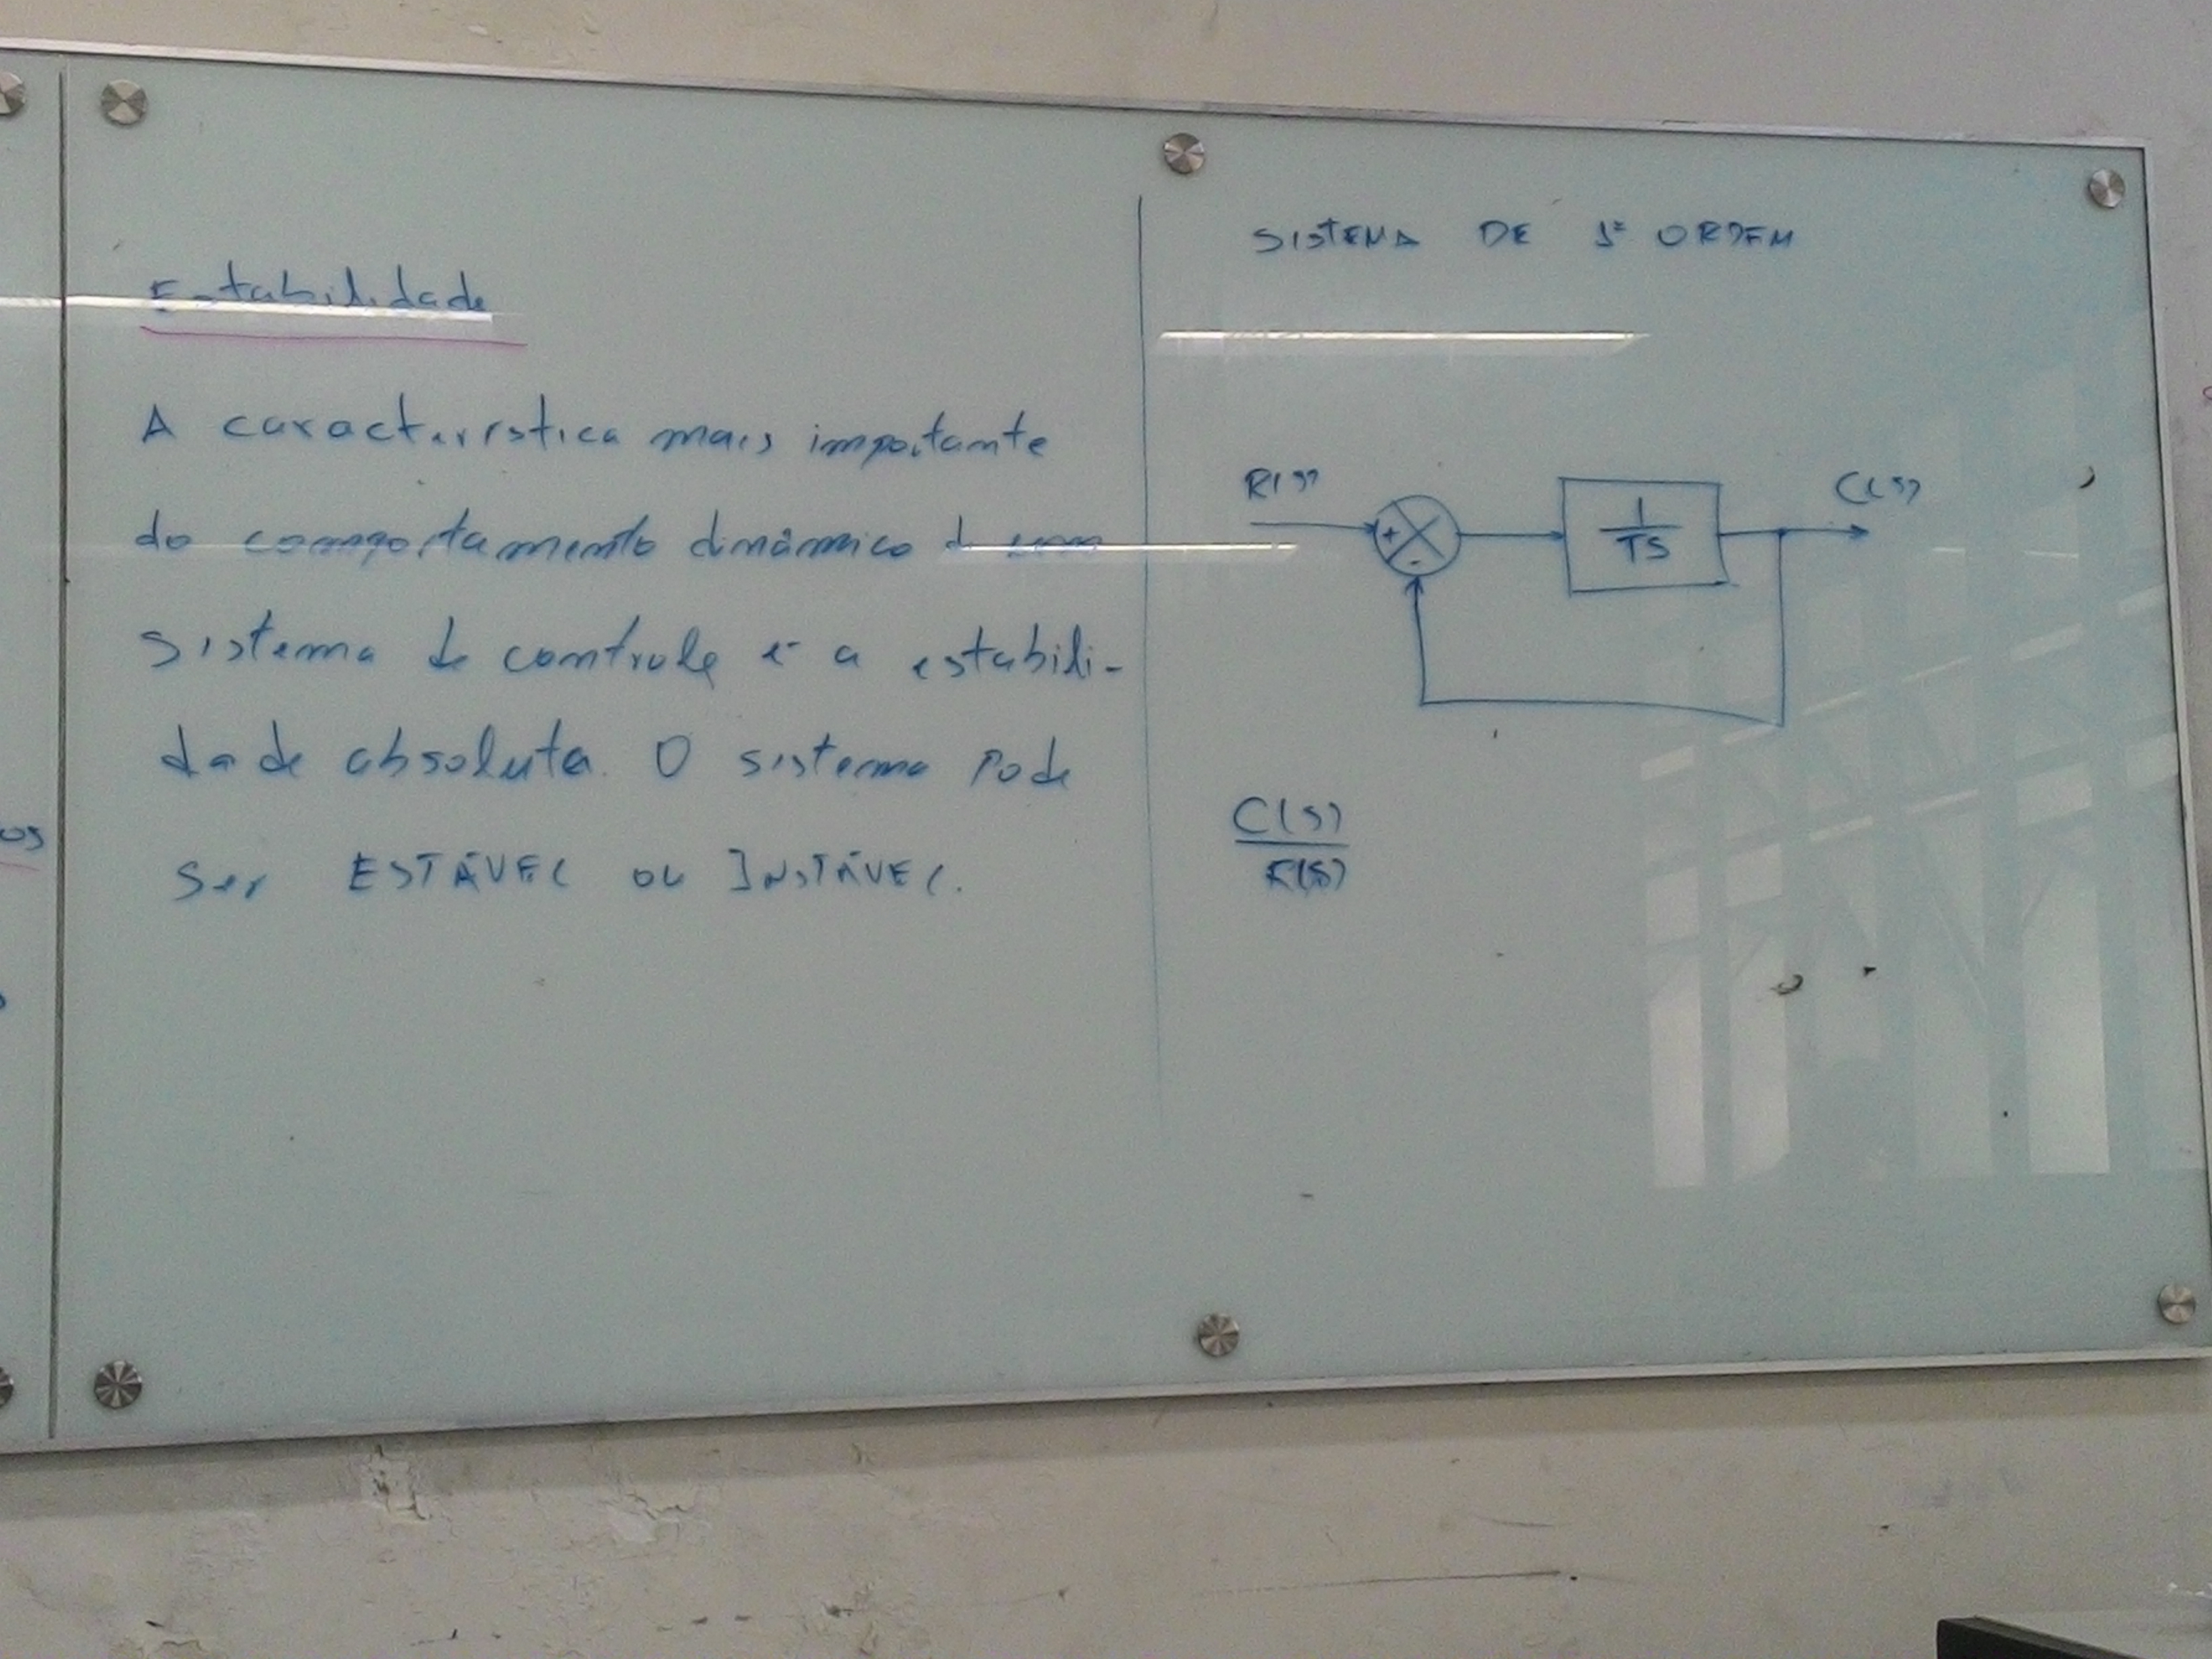 Estabilidade
A característica mais importante
do comportamento dinâmico de um
sistema de controle é a estabili-
dade absoluta. O sistema pode
ser ESTÁVEL OU INSTÁVEL.
SISTEMA DE 1ª ORDEM
R(S)
C(S)
+
-
1
TS
C(S)
R(S)
os